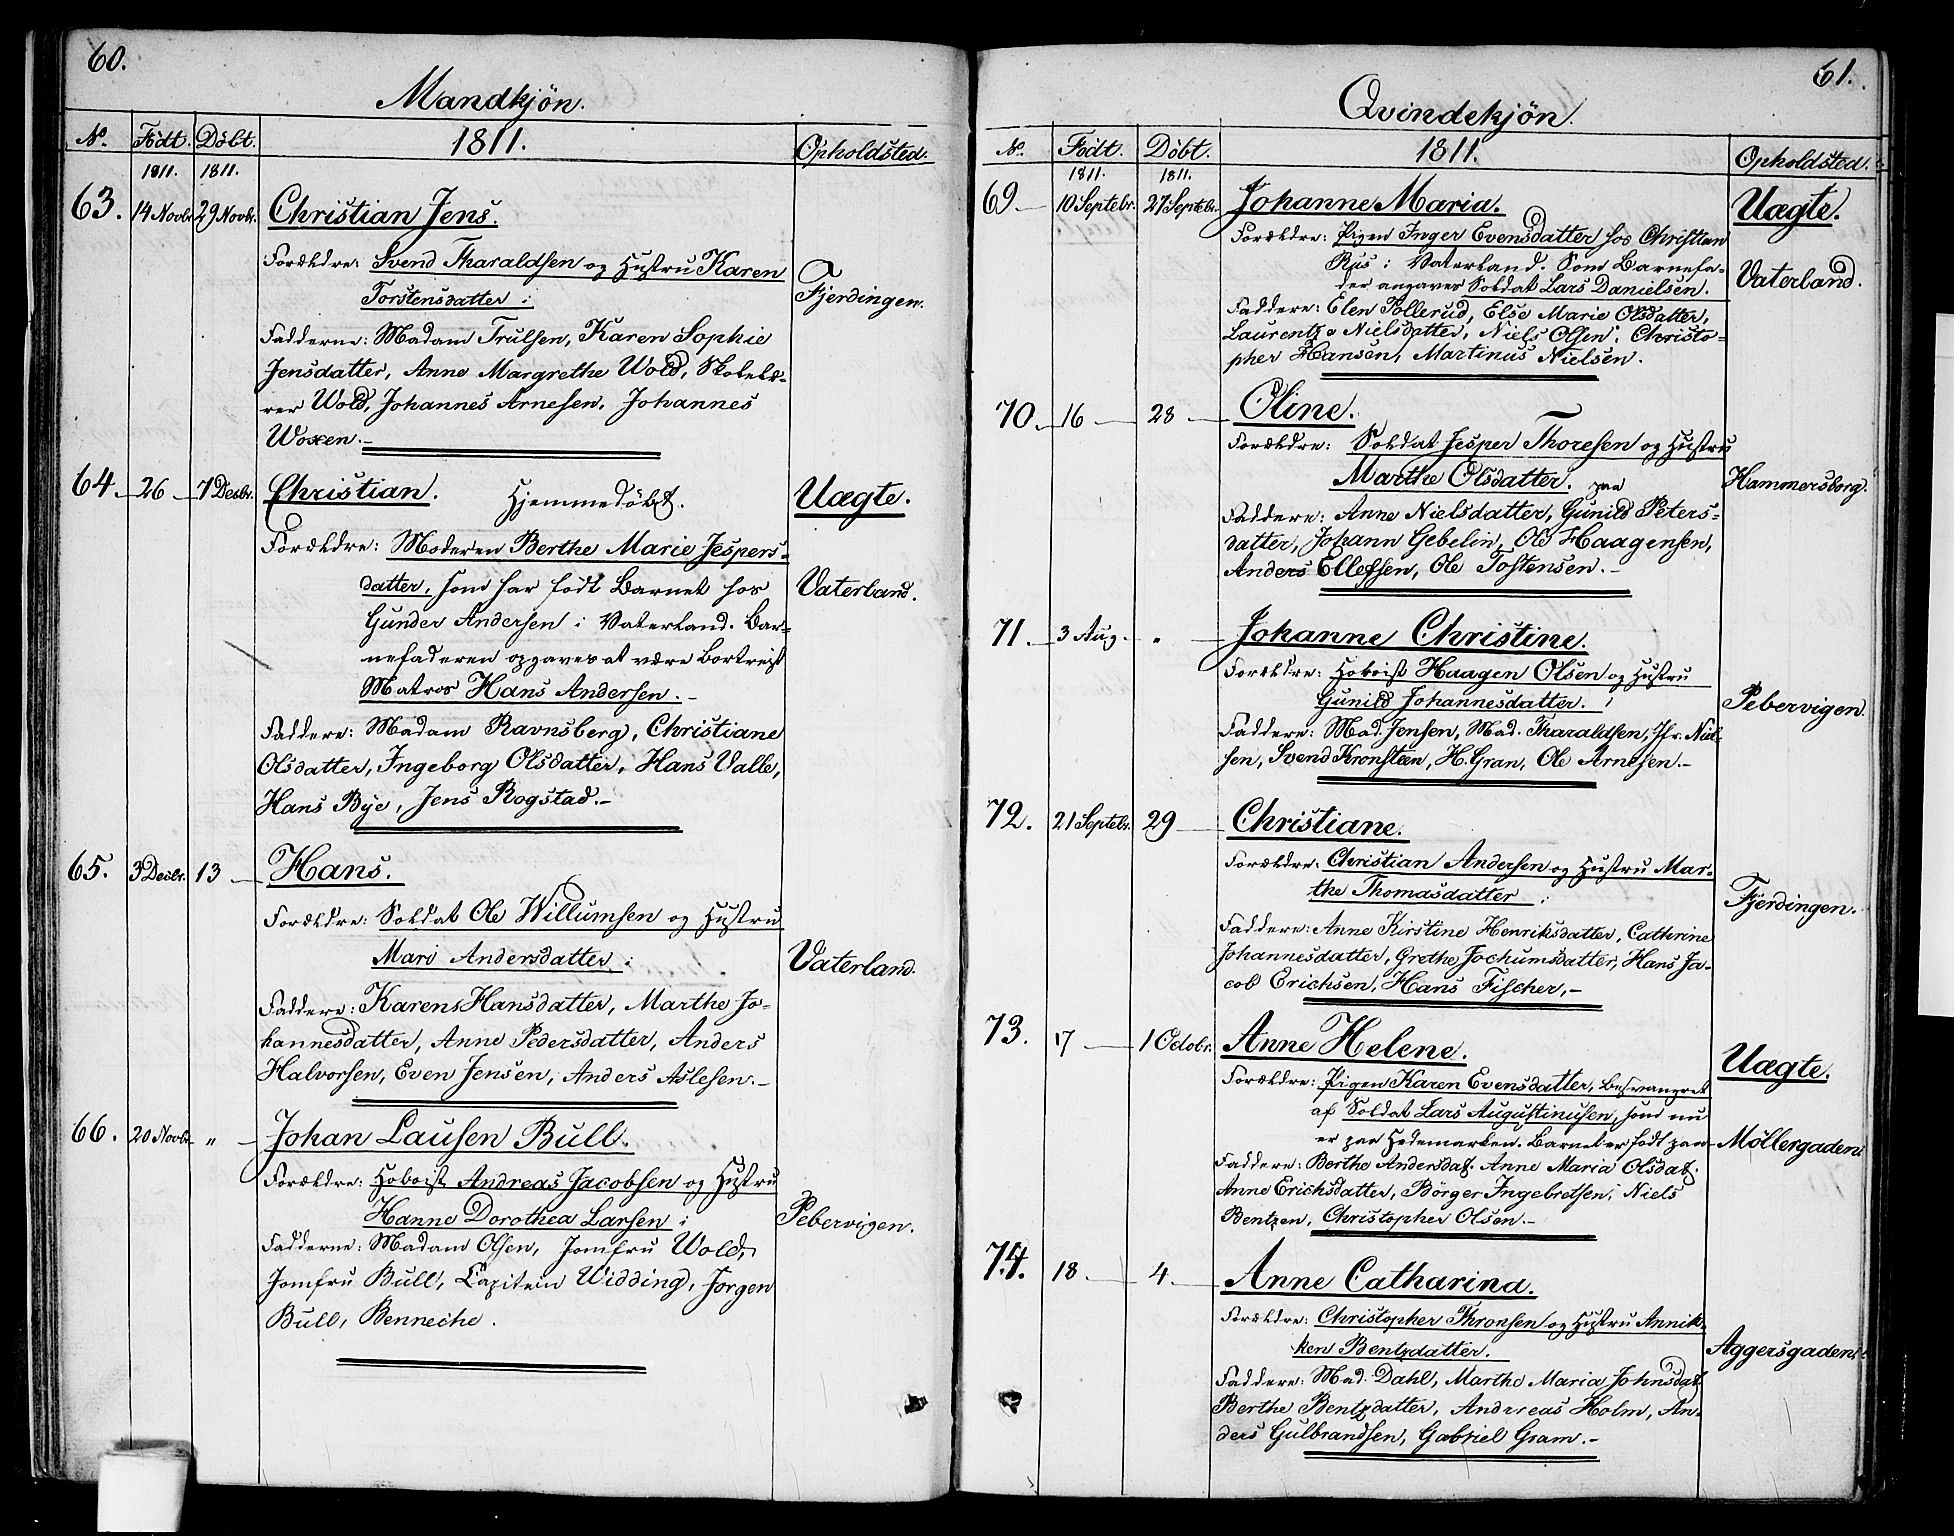 60.
Mandkjön.
No. Födt. Döbt. 1811. Opholdsted.
1811. 1811.
63. 14 Novbr. 29 Novbr. Christian Jens.
Forældre: Svend Tharaldsen og Hustru Karen
Torstensdatter i
Fjerdingen.
Fadderne: Madam Trulsen, Karen Sophie
Jensdatter, Anne Margrethe Wold, Skolelæ-
rer Wold, Johannes Arnesen, Johannes
Woxen.
64. 26 7 Decbr. Christian. Hjemmedöbt. Uægte.
Forældre: Moderen Berthe Marie Jespers-
datter, som har födt Barnet hos Vaterland.
Gunder Andersen i Vaterland. Bar-
nefaderen opgaves at være bortreist
Matros Hans Andersen.
Faddere: Madam Ravnsberg, Christiane
Olsdatter, Ingeborg Olsdatter, Hans Valle,
Hans Bye, Jens Rogstad.
65. 3 Decbr. 13 Hans.
Forældre: Soldat Ole Willumsen og Hustru
Mari Andersdatter i Vaterland.
Faddere: Karen Hansdatter, Marthe Jo-
hannesdatter, Anne Pedersdatter, Anders
Halvorsen, Even Jensen, Anders Aslesen.
66. 20 Novbr. " Johan Lausen Bull.
Forældre: Hoboist Andreas Jacobsen og Hustru
Hanne Dorothea Larsen i Pebervigen.
Fadderne: Madam Olsen, Jomfru Wold,
Jomfru Bull, Capitein Widding, Jørgen
Bull, Benneche.
61.
Qvindekjön.
No. Födt. Döbt. 1811. Opholdsted.
1811. 1811.
69 10 Septebr. 27 Septebr. Johanne Maria. Uægte.
Forældre: Pigen Inger Evensdatter hos Christian
Rus i Vaterland. Som Barnefa- Vaterland.
der angaves Soldat Lars Danielsen.
Faddere: Elen Sollerud, Else Marie Olsdatter,
Laurentze Nielsdatter, Niels Olsen, Christo-
pher Hansen, Martinus Nielsen.
70. 16 28 Oline.
Forældre: Soldat Jesper Thoresen og Hustru
Marthe Olsdatter. paa Hammersborg.
Faddere: Anne Nielsdatter, Gunild Peters-
datter, Johann Gebelin, Ole Haagensen,
Anders Ellefsen, Ole Tostensen.
71. 3 Aug. " Johanne Christine.
Forældre: Hoboist Haagen Olsen og Hustru
Gunild Johannesdatter. i Pebervigen.
Faddere: Mad. Jensen, Mad. Tharaldsen, Jfr. Niel-
sen, Svend Kronsteen, H. Gran, Ole Arnesen.
72. 21 Septebr. 29 Christiane.
Forældre: Christian Andersen og Hustru Mar-
the Thomasdatter i Fjerdingen.
Faddere: Anne Kirstine Henriksdatter, Cathrine
Johannesdatter, Grethe Jochumsdatter, Hans Ja-
cob Erichsen, Hans Fischer,
73. 17 1 Octobr. Anne Helene. Uægte.
Forældre: Pigen Karen Evensdatter, besvangret
af Soldat Lars Augustinusen, som nu
er paa Hedemarken. Barnet er födt paa Möllergaden.
Faddere: Berthe Andersdat. Anne Maria Olsdat.
Anne Erichsdatter, Börger Ingebretsen, Niels
Bentzen, Christopher Olsen.
74. 18 4 Anne Catharina.
Forældre: Christopher Thronsen og Hustru Annik-
ken Bentzdatter. Aggersgaden.
Faddere: Mad. Dahl, Marthe Maria Johnsdat.
Berthe Bentzdatter, Andreas Holm, An-
ders Gulbrandsen, Gabriel Gram.